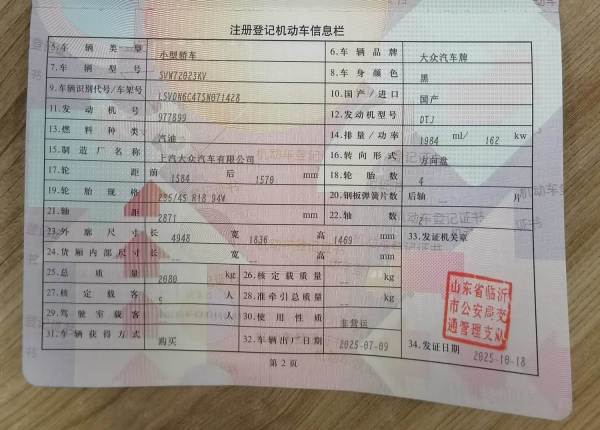 注册登记机动车信息栏
5.车辆类型 小型轿车 6.车辆品牌 大众汽车牌
7.车辆型号 SVW72023KV 8.车身颜色 黑
9.车辆识别代号/车架号 LSVDN6C475N071428 10.国产/进口 国产
11.发动机号 977899 12.发动机型号 DTJ
13.燃料种类 汽油 14.排量/功率 1984 ml/ 162 kw
15.制造厂名称 上汽大众汽车有限公司 16.转向形式 方向盘
17.轮距 前 1584 后 1570 mm 18.轮胎数 4
19.轮胎规格 235/45 R18 94W 20.钢板弹簧片数 后轴 -- 片
21.轴距 2871 mm 22.轴数 2
23.外廓尺寸 长 4948 宽 1836 高 1469 mm 33.发证机关章
24.货厢内部尺寸 长 -- 宽 -- 高 -- mm
25.总质量 2080 kg 26.核定载质量 -- kg
27.核定载客 5 人 28.准牵引总质量 -- kg
29.驾驶室载客 -- 人 30.使用性质 非营运
31.车辆获得方式 购买 32.车辆出厂日期 2025-07-09 34.发证日期 2025-10-18
山东省临沂
市公安局交
通管理支队
第2页